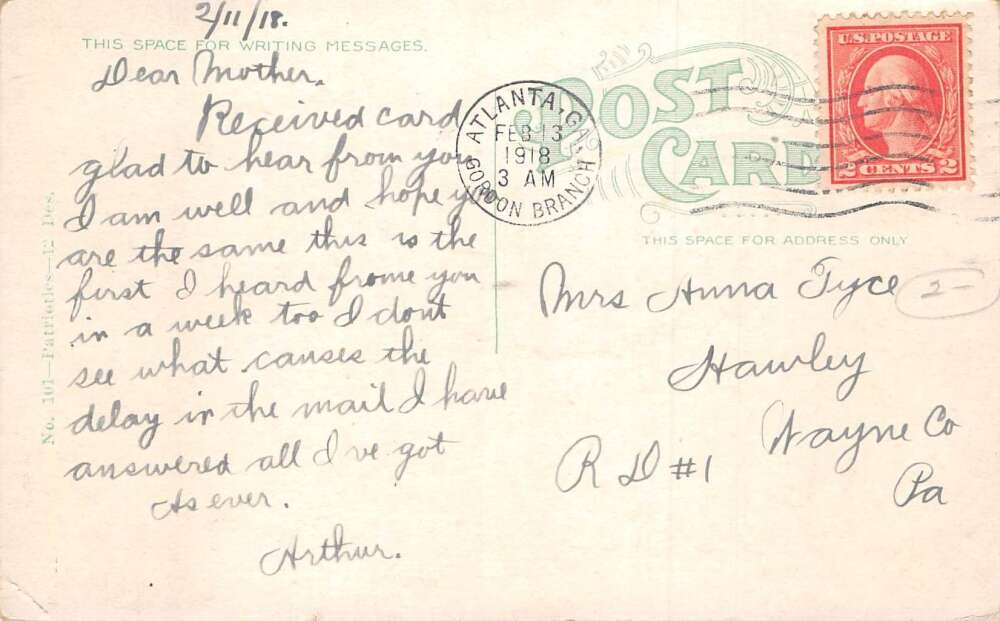 2/11/18.
THIS SPACE FOR WRITING MESSAGES.
Dear Mother.
Received card
glad to hear from you
I am well and hope you
are the same this is the
first I heard frome you
in a week too I dont
see what causes the
delay in the mail I have
answered all I've got
As ever.
Arthur.
No. 101—Patriotics—12 Des.
POST
CARD
ATLANTA, GA.
FEB 13
1918
3 AM
GORDON BRANCH
U.S. POSTAGE
2 CENTS 2
THIS SPACE FOR ADDRESS ONLY
Mrs Anna Tyce
2-
Hawley
Wayne Co
R D #1
Pa